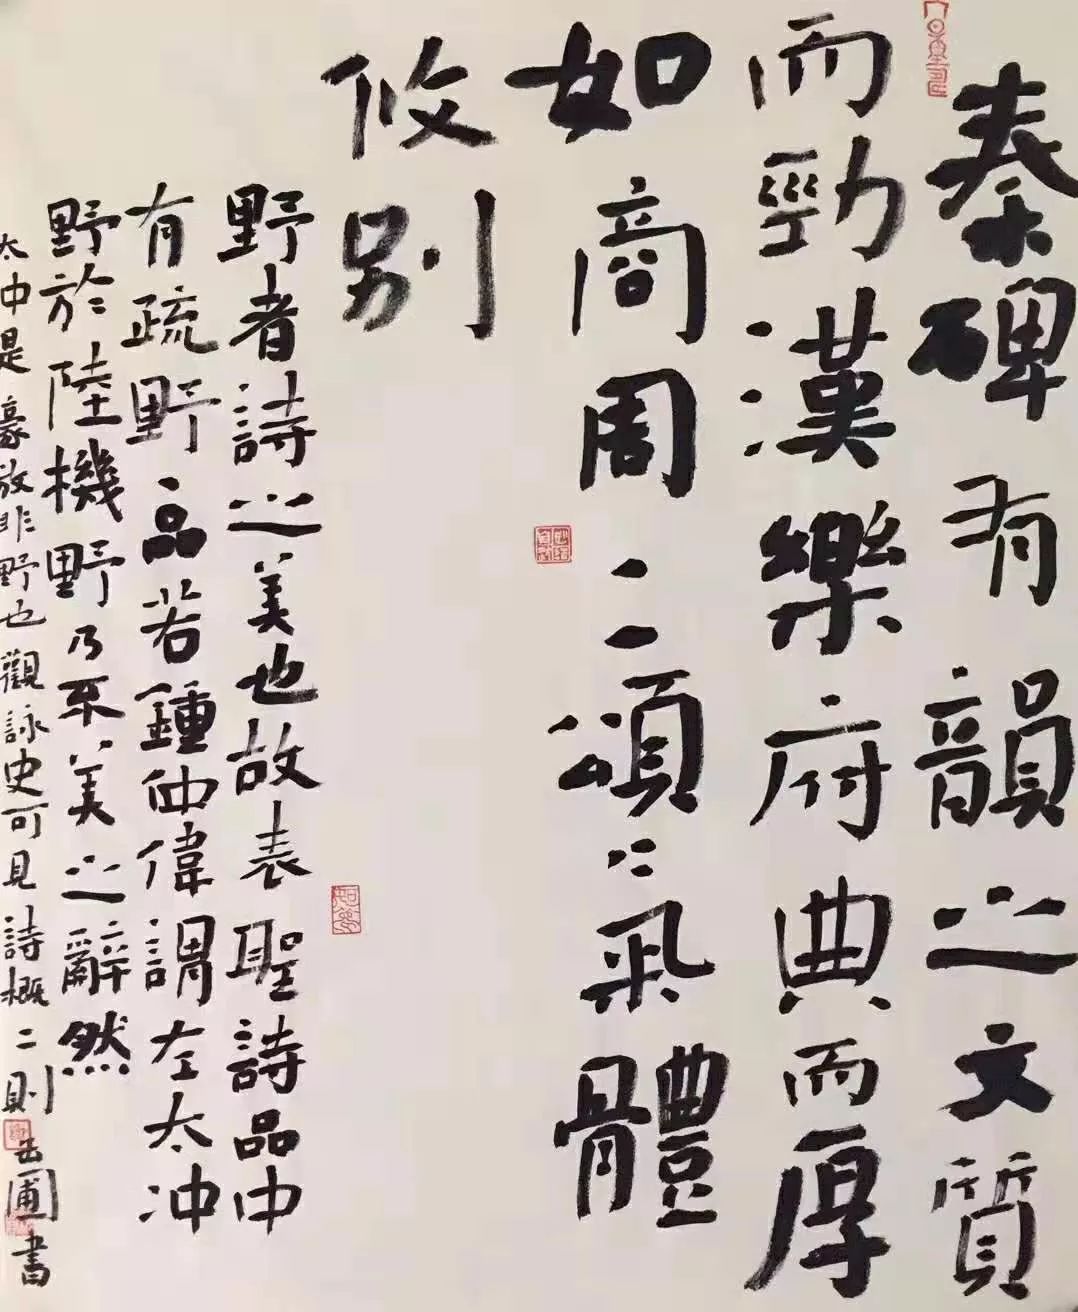 秦碑有韻之文質
而勁漢樂府典而厚
如商周二頌氣體
攸別
野者詩之美也故表聖詩品中
有疏野一品若鍾仲偉謂左太冲
野於陸機野乃不美之辭然
太冲是豪放非野也觀詠史可見詩概二則
圃書